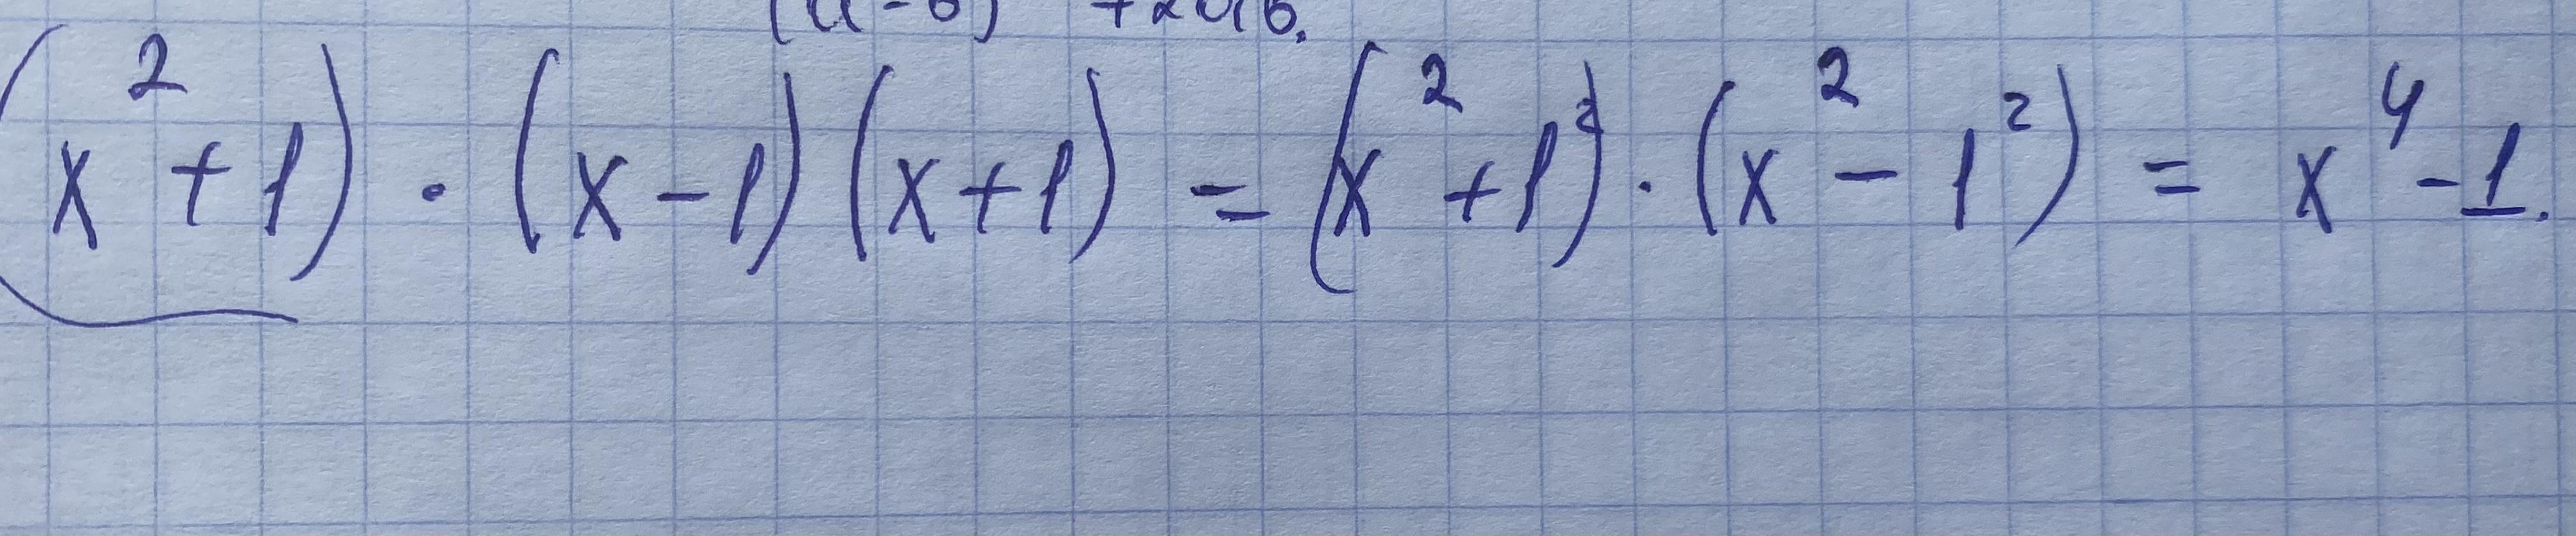 (a-b) +2ab.
(x²+1)·(x-1)(x+1) = (x²+1²)·(x²-1²) = x⁴-1.